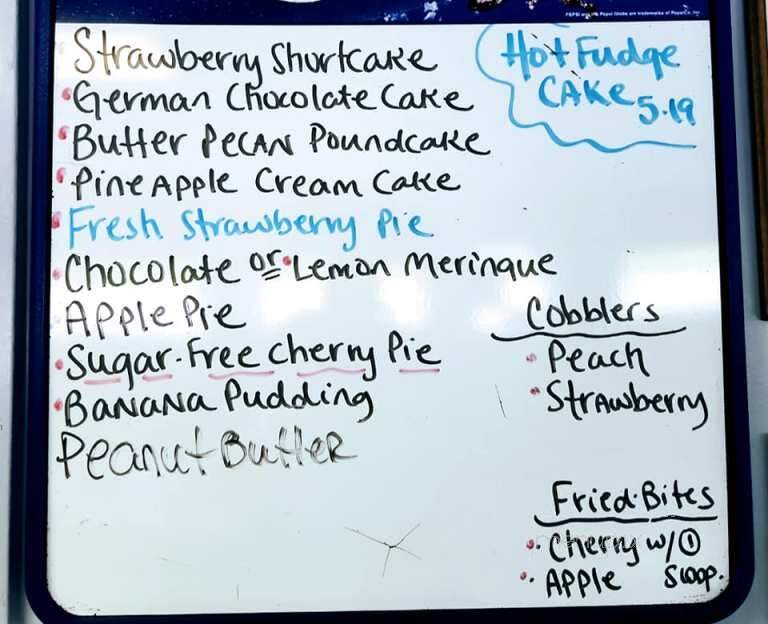 PEPSI and the Pepsi Globe are trademarks of PepsiCo, Inc.
Strawberry Shortcake
German Chocolate Cake
Butter Pecan Poundcake
Pine Apple Cream Cake
Fresh Strawberry Pie
Chocolate or Lemon Meringue
Apple Pie
Sugar-Free Cherry Pie
Banana Pudding
Peanut Butter
Hot Fudge
Cake 5.19
Cobblers
Peach
Strawberry
Fried Bites
Cherry w/ 1
Apple Scoop.